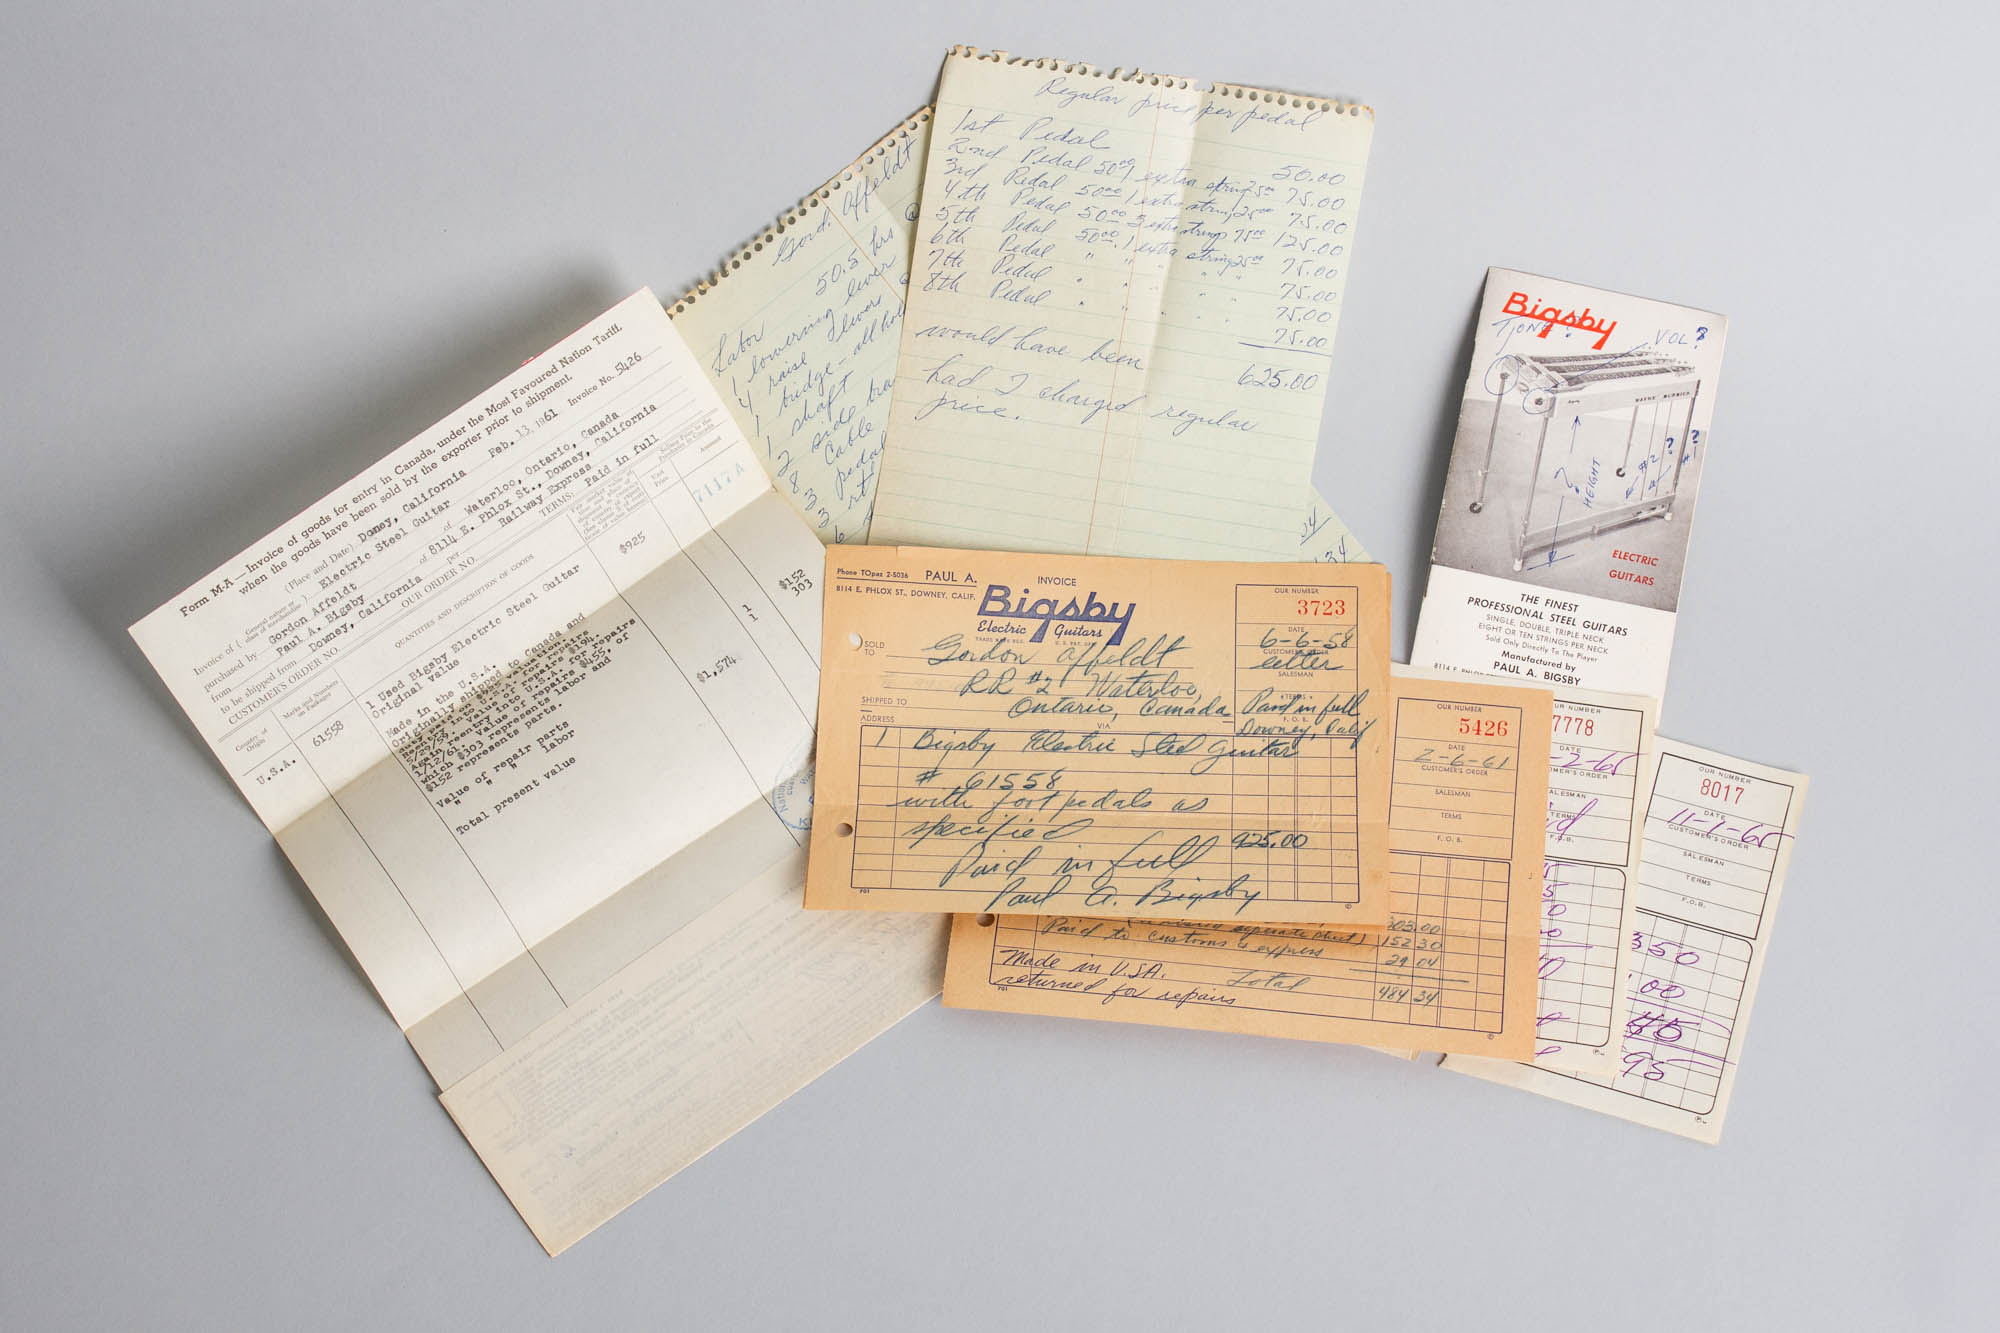 Form M-A—Invoice of goods for entry in Canada, under the Most Favoured Nation Tariff,
when the goods have been sold by the exporter prior to shipment.
(Place and Date) Downey, California Feb. 13, 1961 Invoice No. 5426
Invoice of (General nature or class of merchandise) Electric Steel Guitar
purchased by Gordon Affeldt of Waterloo, Ontario, Canada
from Paul A. Bigsby of 8114 E. Phlox St., Downey, California
to be shipped from Downey, California per Railway Express
CUSTOMER'S ORDER NO. OUR ORDER NO. TERMS: Paid in full
Country of Origin
Marks and Numbers on Packages
QUANTITIES AND DESCRIPTION OF GOODS
Selling Price to the Purchaser in Canada
Unit Price
Amount
7117A
U.S.A.
61558
1 Used Bigsby Electric Steel Guitar
Original value
$925
Made in the U.S.A.
Originally shipped to Canada and
duty paid on $925 valuation.
Reentry into U.S.A. for repairs
5/29/59. Value of repairs $194.
Again reentry into U.S.A. for repairs
1/12/61. Value of repairs $455, of
which $303 represents labor and
$152 represents parts.
Value of repair parts 1 $152
" " " labor 1 303
Total present value $1,574
Gord. Affeldt
Labor 50.5 hrs @
1 lowering lever
4 raise levers @
1 bridge - all
1 shaft
2 side
8 Cable
3 pedal
3 rt
6
Regular price per pedal
1st Pedal 50.00
2nd Pedal 50.00 1 extra string 25.00 75.00
3rd Pedal 50.00 1 extra string 25.00 75.00
4th Pedal 50.00 3 extra strings 75.00 125.00
5th Pedal 50.00 1 extra string 25.00 75.00
6th Pedal " " " " 75.00
7th Pedal " " " " 75.00
8th Pedal " " " " 75.00
would have been 625.00
had I charged regular
price.
Bigsby
TONE? VOL?
WAYNE BURDICK
? HEIGHT
#2 ?
#1 ?
ELECTRIC
GUITARS
THE FINEST
PROFESSIONAL STEEL GUITARS
SINGLE, DOUBLE, TRIPLE NECK
EIGHT OR TEN STRINGS PER NECK
Sold Only Directly To The Player
Manufactured by
PAUL A. BIGSBY
8114 E. PHLOX
Phone TOpaz 2-5036 PAUL A. INVOICE
8114 E. PHLOX ST., DOWNEY, CALIF.
Bigsby
Electric Guitars
TRADE MARK REG. U.S. PAT. OFF.
OUR NUMBER
3723
DATE
6-6-58
CUSTOMER'S ORDER
letter
SALESMAN
TERMS
Paid in full
F.O.B.
Downey, Calif
SOLD TO Gordon Affeldt
RR #2 Waterloo,
SHIPPED TO Ontario, Canada
ADDRESS VIA
1 Bigsby Electric Steel Guitar
# 61558
with foot pedals as
specified 925.00
Paid in full
Paul A. Bigsby
701
OUR NUMBER
5426
DATE
2-6-61
CUSTOMER'S ORDER
SALESMAN
TERMS
F.O.B.
303.00
separate sheet) 152 30
Paid to customs & express 29 04
Made in U.S.A. Total 484 34
returned for repairs
701
OUR NUMBER
7778
DATE
-2-65
CUSTOMER'S ORDER
SALESMAN
TERMS
F.O.B.
OUR NUMBER
8017
DATE
11-1-65
CUSTOMER'S ORDER
SALESMAN
TERMS
F.O.B.
350
00
45
95